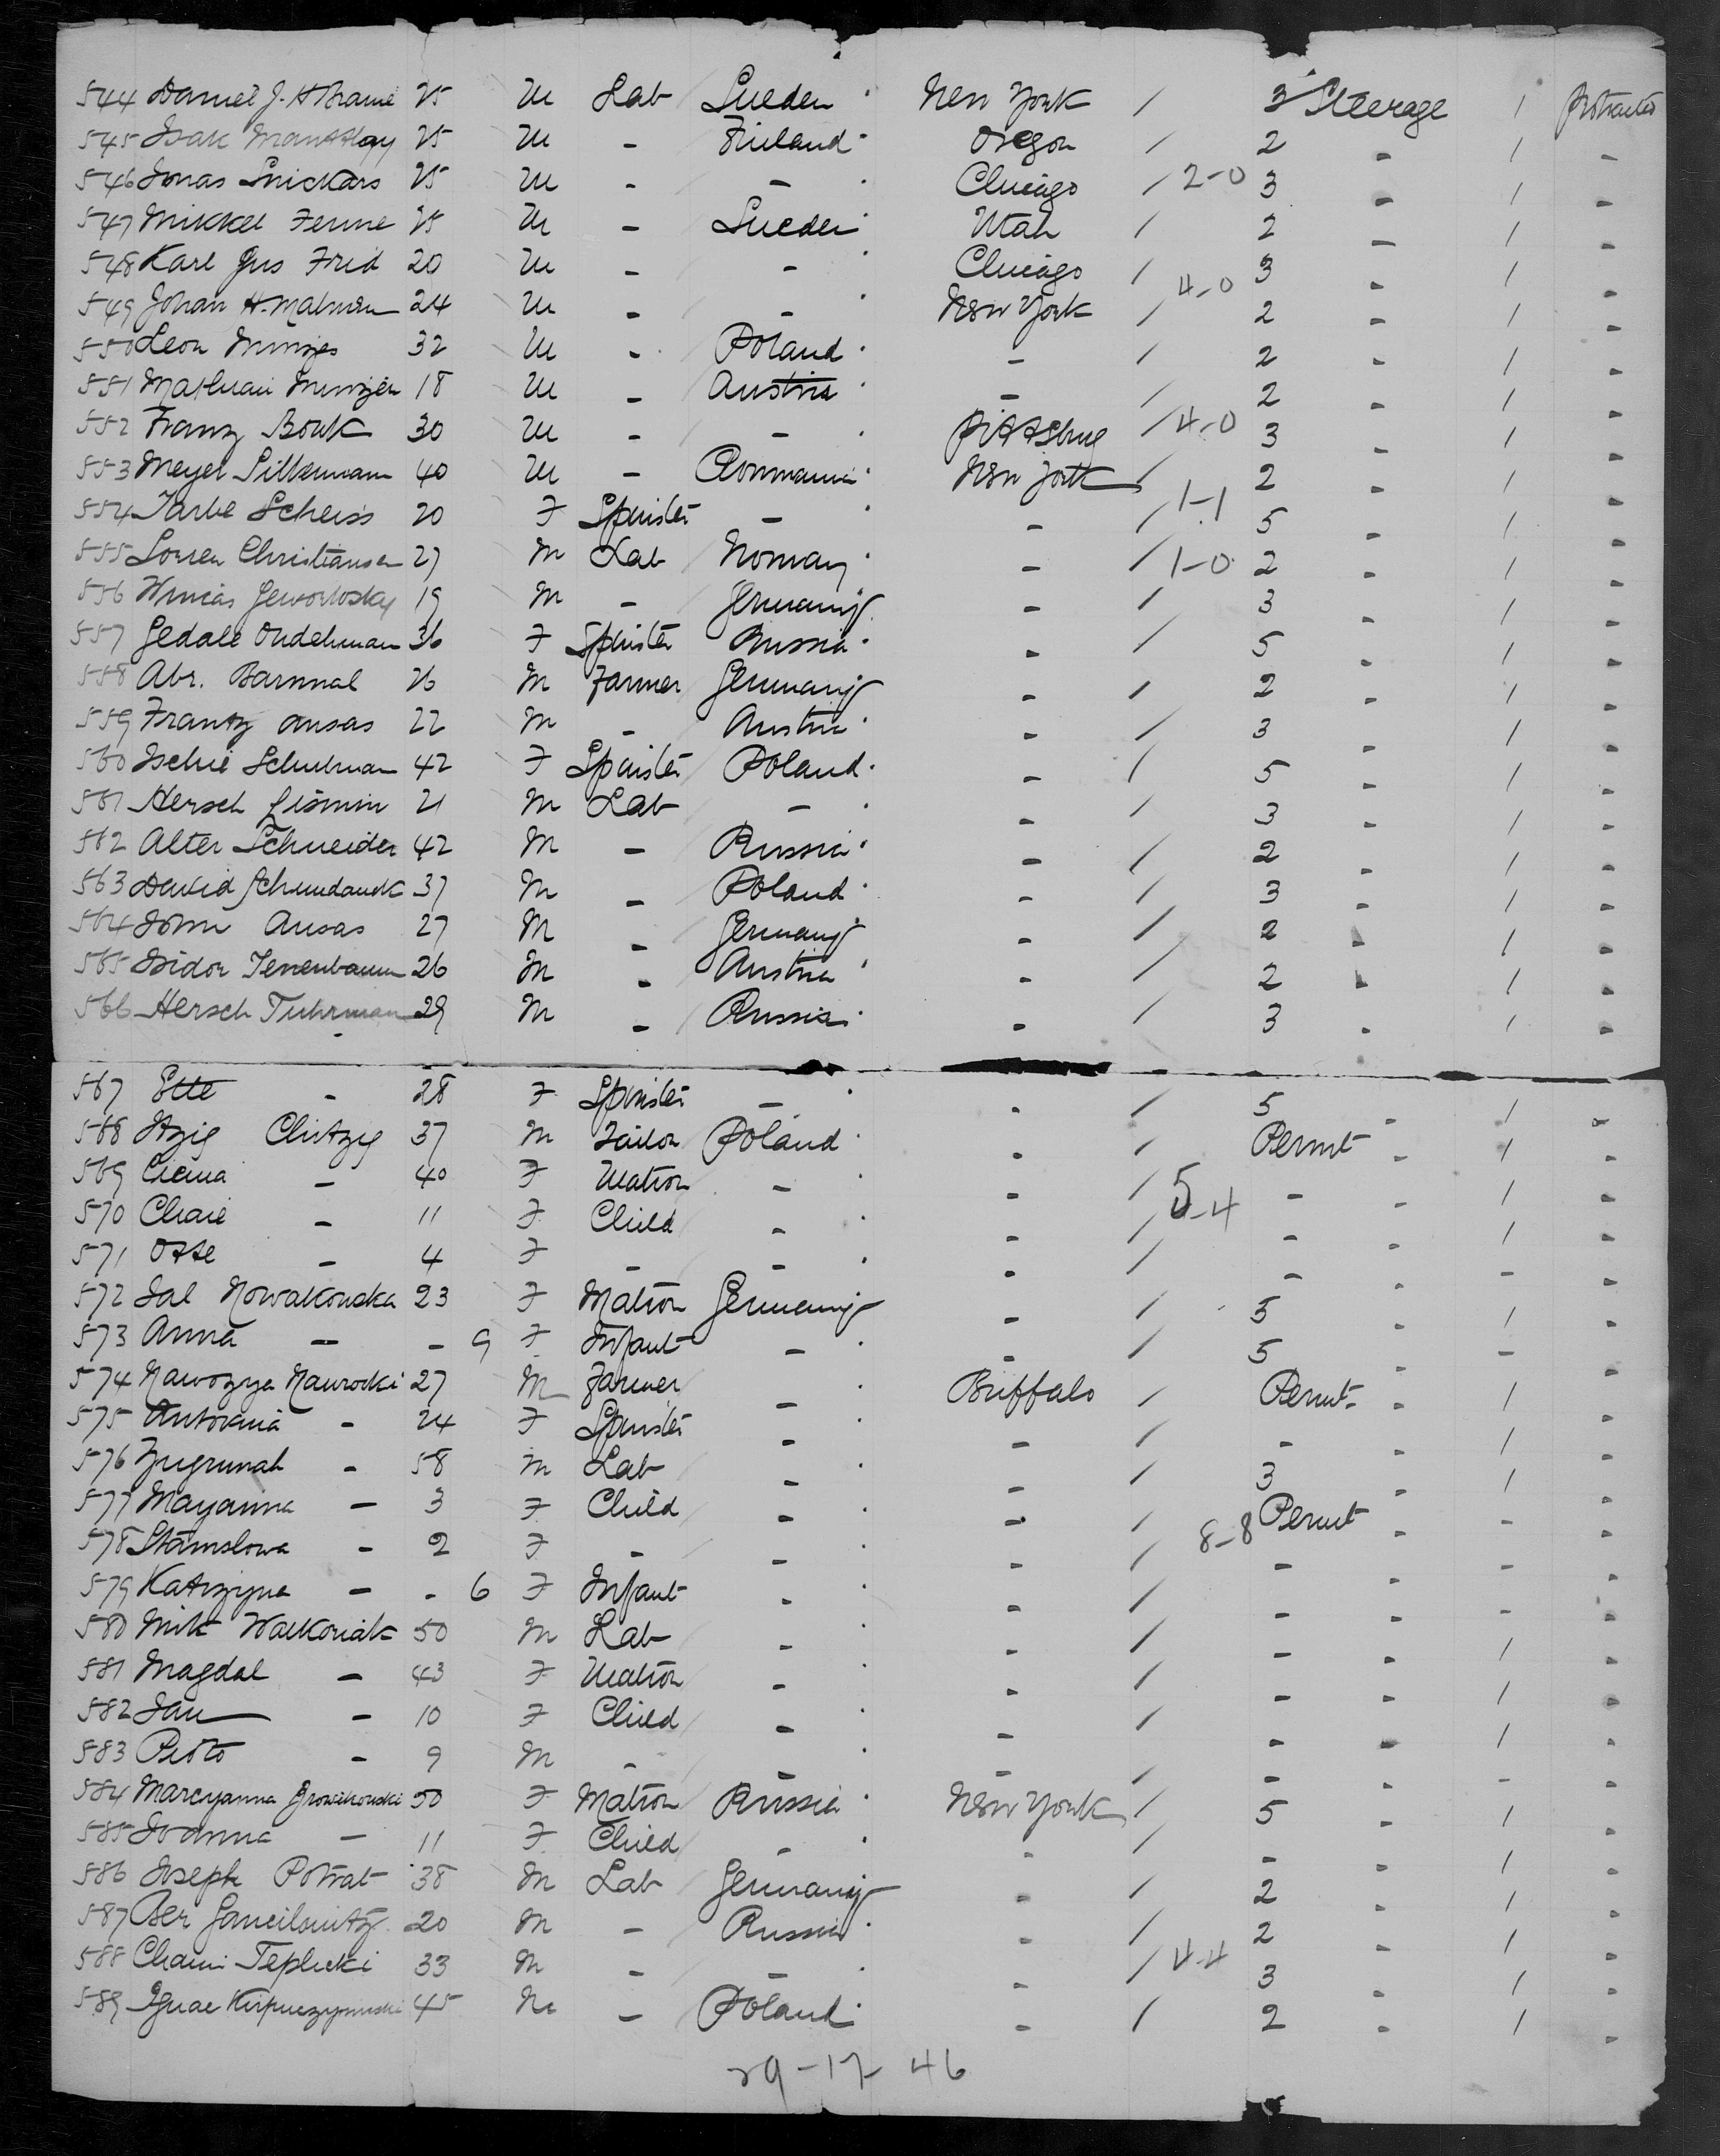 544 Daniel J. H Brame 25 M Lab Sueden New York / 3 Steerage 1 Protracted
545 Isak 25 M - Finland Oregon / 2 - 1 -
546 Jonas Snickars 25 M - - Chicago / 2-0 3 - 1 -
547 Mikkel 25 M - Sueden Utah / 2 - 1 -
548 Karl Gus Frid 20 M - - Chicago / 3 - 1 -
549 Johan H. Malmen 24 M - - New York / 4-0 2 - 1 -
550 Leon 32 M - Poland - / 2 - 1 -
551 18 M - Austria - / 2 - 1 -
552 Franz Bouk 30 M - - Pittsburg / 4-0 3 - 1 -
553 Meyer Silberman 40 M - Roumania New York / 2 - 1 -
554 Tarbe Scheiss 20 F Spinster - - / 1-1 5 - 1 -
555 Soren Christiansen 27 M Lab Norway - / 1-0 2 - 1 -
556 19 M - Germany - / 3 - 1 -
557 Gedale 36 F Spinster Russia - / 5 - 1 -
558 Abr. Barmal 26 M Farmer Germany - / 2 - 1 -
559 Frantz Ansas 22 M - Austria - / 3 - 1 -
560 Schulman 42 F Spinster Poland - / 5 - 1 -
561 Hersch 21 M Lab - - / 3 - 1 -
562 Alter Schneider 42 M - Russia - / 2 - 1 -
563 David 37 M - Poland - / 3 - 1 -
564 John Ansas 27 M - Germany - / 2 - 1 -
565 Isidor Tenenbaum 26 M - Austria - / 2 - 1 -
566 Hersch Tuhrman 29 M - Russia - / 3 - 1 -
567 Ette - 28 F Spinster - - / 5 - 1 -
568 Itzig Chitzig 37 M Tailor Poland - / Permt - 1 -
569 - 40 F Matron - - / 5-4 - - 1 -
570 Chaie - 11 F Child - - / - - 1 -
571 Otte - 4 F - - - / - - - -
572 Sal Nowakouska 23 F Matron Germany - / 5 - 1 -
573 Anna - - 9 F Infant - - / 5 - - -
574 Nawrocki 27 M Farmer - Buffalo / Permt - 1 -
575 Antonina - 24 F Spinster - - / - - 1 -
576 - 58 M Lab - - / 3 - 1 -
577 Mayanna - 3 F Child - - / Permt - - -
578 Stanislowa - 2 F - - - / 8-8 - - - -
579 Katrzyna - - 6 F Infant - - / - - - -
580 Mik Walkoriak 50 M Lab - - / - - 1 -
581 Magdal - 43 F Matron - - / - - 1 -
582 Jan - 10 F Child - - / - - 1 -
583 Pioto - 9 M - - - / - - - -
584 Marcyanna 50 F Matron Russia New York / 5 - 1 -
585 Joanna - 11 F Child - - / - - 1 -
586 Joseph Potrat 38 M Lab Germany - / 2 - 1 -
587 Ber 20 M - Russia - / 2 - 1 -
588 Chaim Teplicki 33 M - - - / 4-4 3 - 1 -
589 Ignac 45 M - Poland - / 2 - 1 -
29-17 46